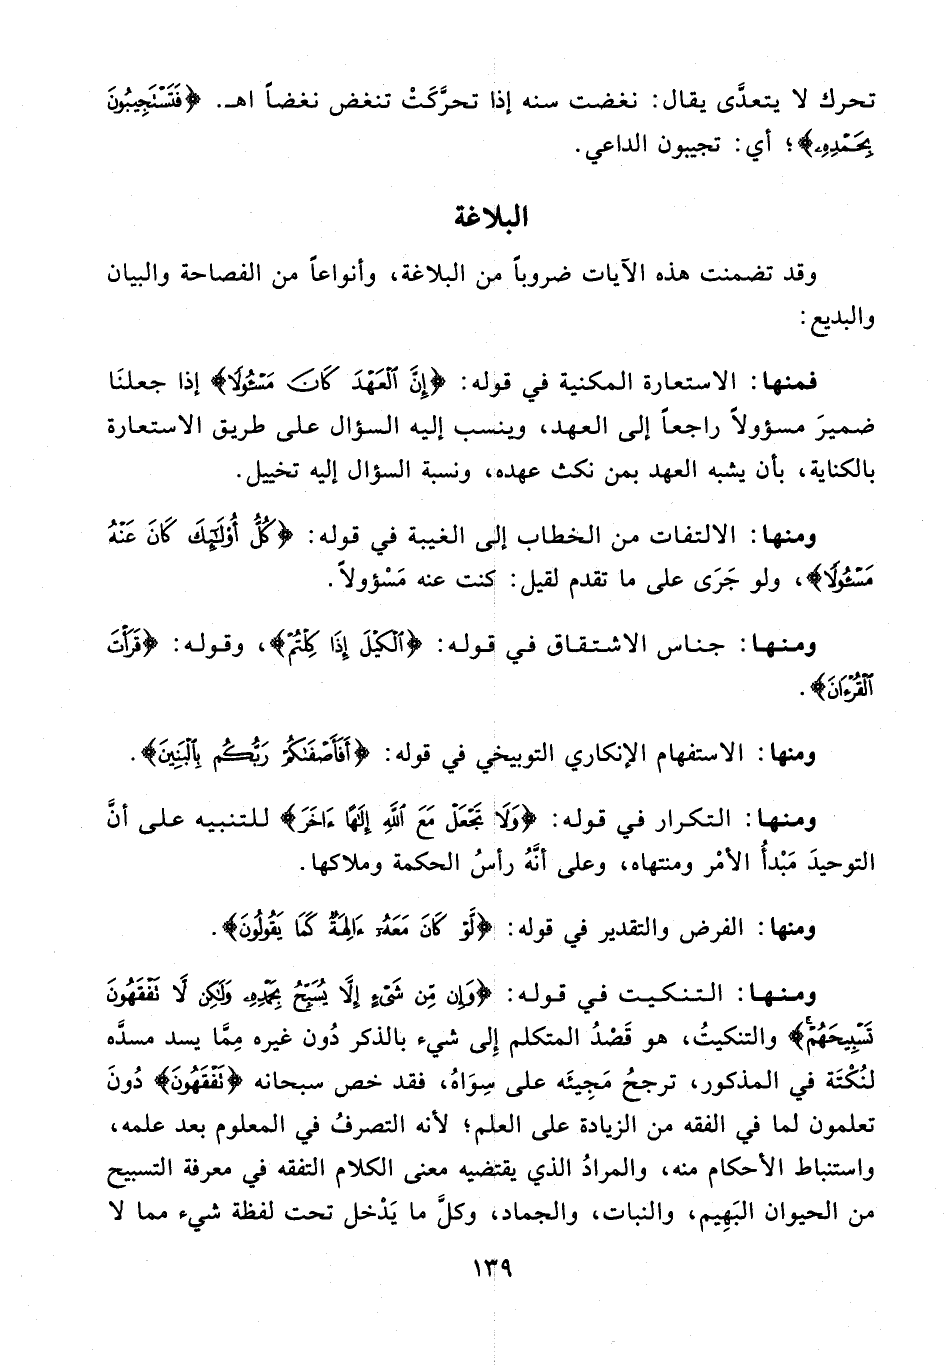 تحرك لا يتعدَّى يقال: نغضت سنه إذا تحرَّكَتْ تنغض نغضاً اهـ. ﴿فَتَسْتَجِيبُونَ
بِحَمْدِهِۦ﴾؛ أي: تجيبون الداعي.
البلاغة
وقد تضمنت هذه الآيات ضروباً من البلاغة، وأنواعاً من الفصاحة والبيان
والبديع:
فمنها: الاستعارة المكنية في قوله: ﴿إِنَّ ٱلْعَهْدَ كَانَ مَسْـُٔولًا﴾ إذا جعلنَا
ضميرَ مسؤولاً راجعاً إلى العهد، وينسب إليه السؤال على طريق الاستعارة
بالكناية، بأن يشبه العهد بمن نكث عهده، ونسبة السؤال إليه تخييل.
ومنها: الالتفات من الخطاب إلى الغيبة في قوله: ﴿كُلُّ أُوْلَٰٓئِكَ كَانَ عَنْهُ
مَسْـُٔولًا﴾، ولو جَرَى على ما تقدم لقيل: كنت عنه مَسْؤولاً.
ومنها: جناس الاشتقاق في قوله: ﴿ٱلْكَيْلَ إِذَا كِلْتُمْ﴾، وقوله: ﴿قَرَأْتَ
ٱلْقُرْءَانَ﴾.
ومنها: الاستفهام الإنكاري التوبيخي في قوله: ﴿أَفَأَصْفَىٰكُمْ رَبُّكُم بِٱلْبَنِينَ﴾.
ومنها: التكرار في قوله: ﴿وَلَا تَجْعَلْ مَعَ ٱللَّهِ إِلَٰهًا ءَاخَرَ﴾ للتنبيه على أنَّ
التوحيدَ مَبْدأُ الأمْر ومنتهاه، وعلى أنَّهُ رأسُ الحكمة وملاكها.
ومنها: الفرض والتقدير في قوله: ﴿لَّوْ كَانَ مَعَهُۥٓ ءَالِهَةٌ كَمَا يَقُولُونَ﴾.
ومنها: التنكيت في قوله: ﴿وَإِن مِّن شَىْءٍ إِلَّا يُسَبِّحُ بِحَمْدِهِۦ وَلَٰكِن لَّا تَفْقَهُونَ
تَسْبِيحَهُمْ﴾ والتنكيتُ، هو قَصْدُ المتكلم إِلى شيء بالذكر دُون غيره مِمَّا يسد مسدَّه
لنُكْتَة في المذكور، ترجحُ مَجِيئَه على سِوَاهُ، فقد خص سبحانه ﴿تَفْقَهُونَ﴾ دُونَ
تعلمون لما في الفقه من الزيادة على العلم؛ لأنه التصرفُ في المعلوم بعد علمه،
واستنباط الأحكام منه، والمرادُ الذي يقتضيه معنى الكلام التفقه في معرفة التسبيح
من الحيوان البَهِيم، والنبات، والجماد، وكلَّ ما يَدْخل تحت لفظة شيء مما لا
١٣٩